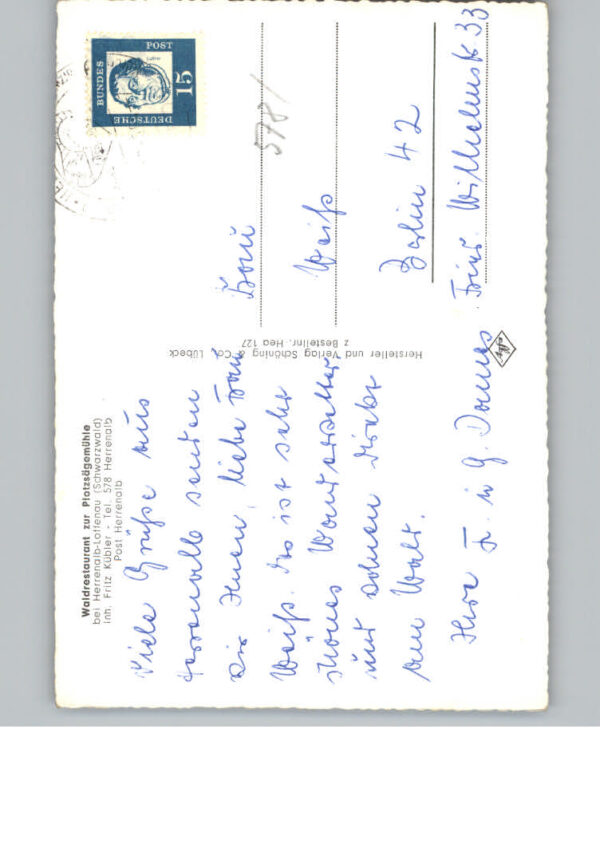 Waldrestaurant zur Plotzsägemühle
bei Herrenalb-Loffenau (Schwarzwald)
Inh. Fritz Kübler - Tel. 578 Herrenalb
Post Herrenalb
Viele Grüße aus
Herrenalb senden
wir Ihnen, liebe Frau
Weiß. Es ist sehr
schönes Wanderwetter
und wohnen direkt
am Wald.
Ihre F. u G.
Hersteller und Verlag Schöning & Co., Lübeck
z Bestellnr. Hea 127
DEUTSCHE
BUNDES
POST
15
578/
Frau
Weiß
Berlin 42
Frier. Wilhelmstr 33